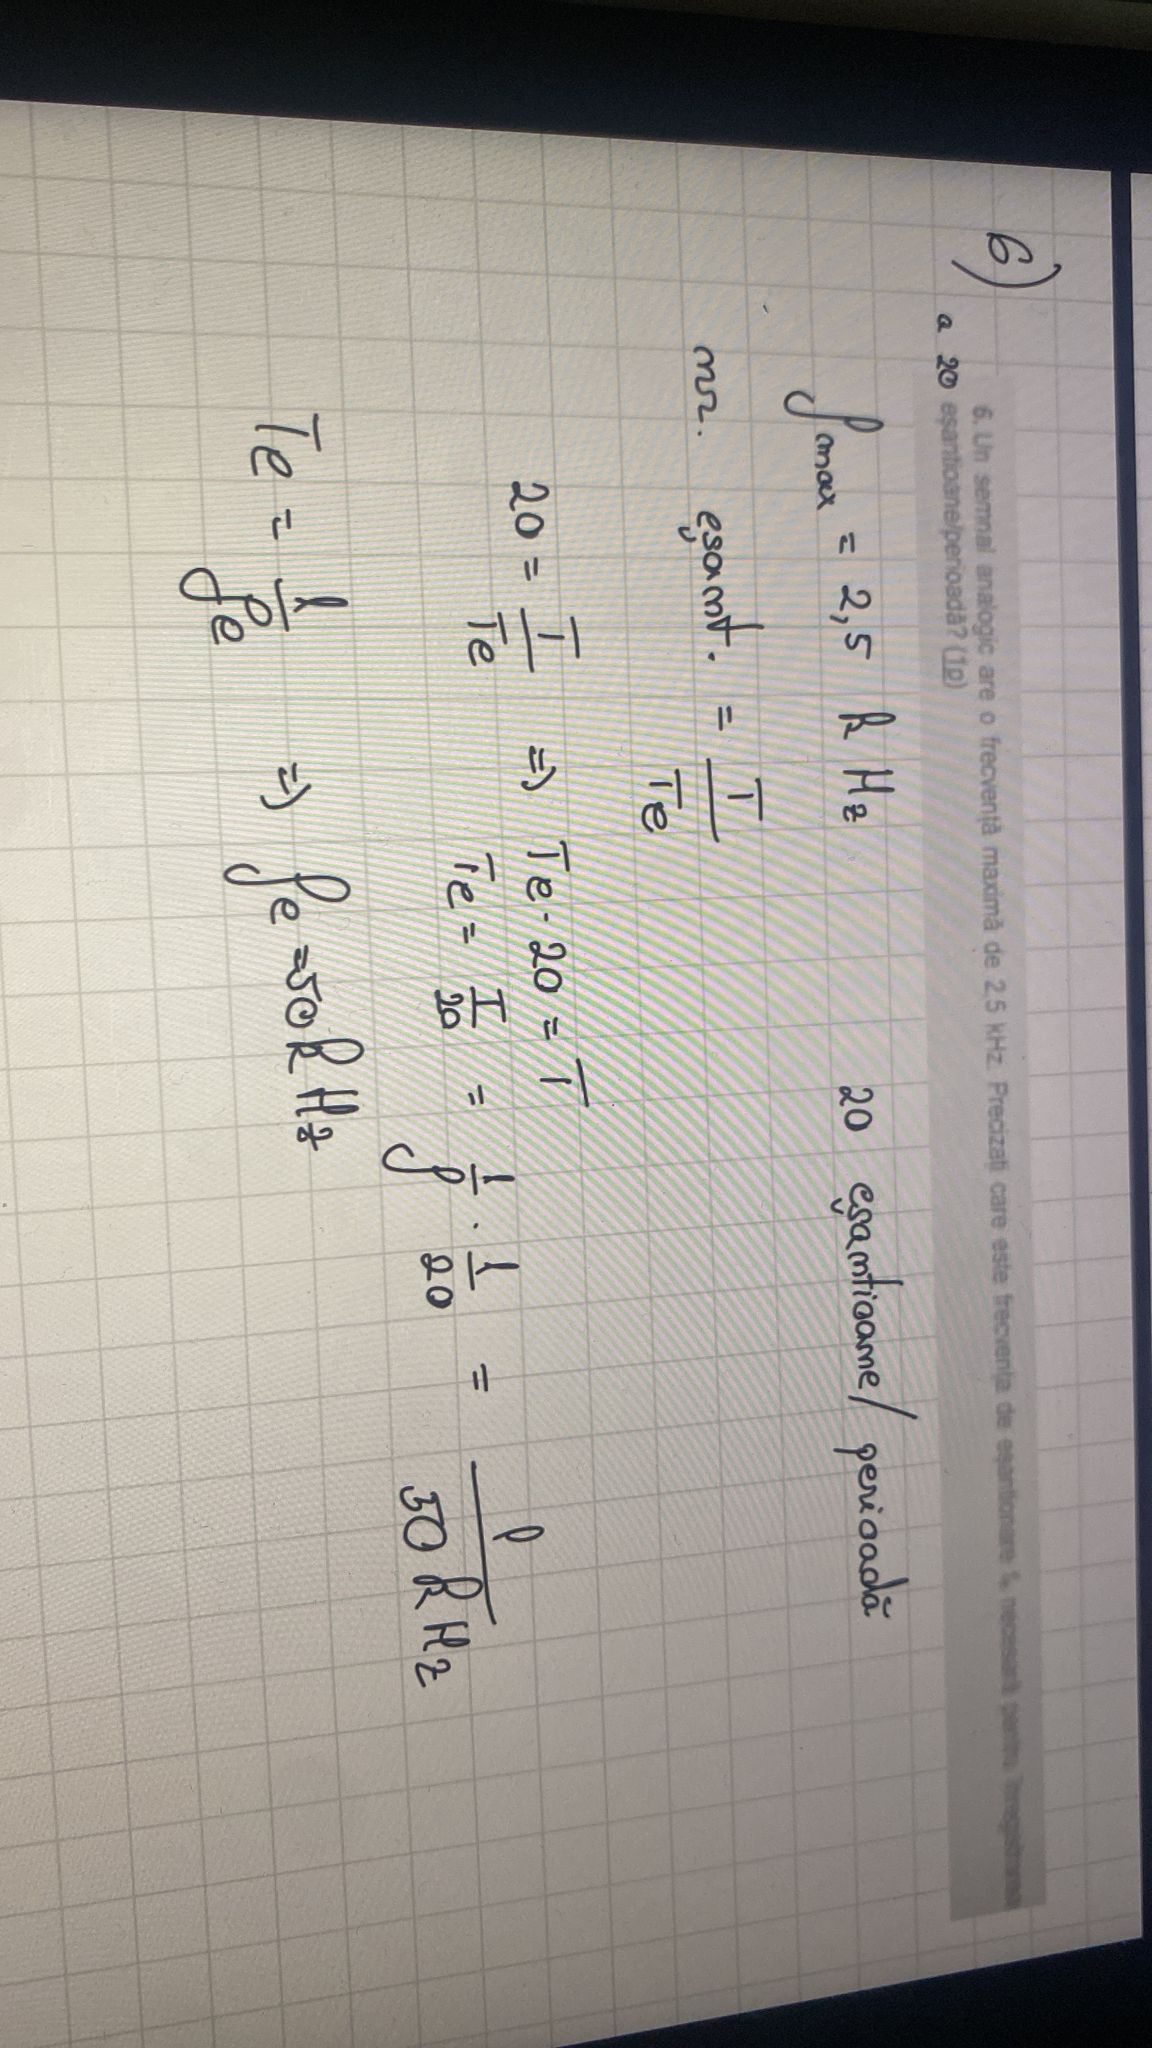 6)
6. Un semnal analogic are o frecvență maximă de 2.5 kHz. Precizați care este frecvența de eșantionare fₑ necesară pentru înregistrarea
a 20 eșantioane/perioadă? (1p)
fmax = 2,5 kHz 20 eșantioane/perioadă
nr. eșant. = T/Te
20 = T/Te => Te·20 = T
Te = T/20 = 1/f · 1/20 = 1/50 kHz
Te = 1/fe => fe = 50 kHz